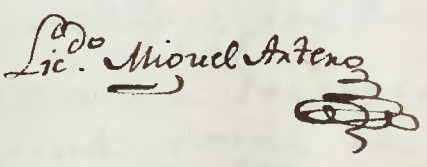 Lic.ᵃᵈᵒ Miguel Antero